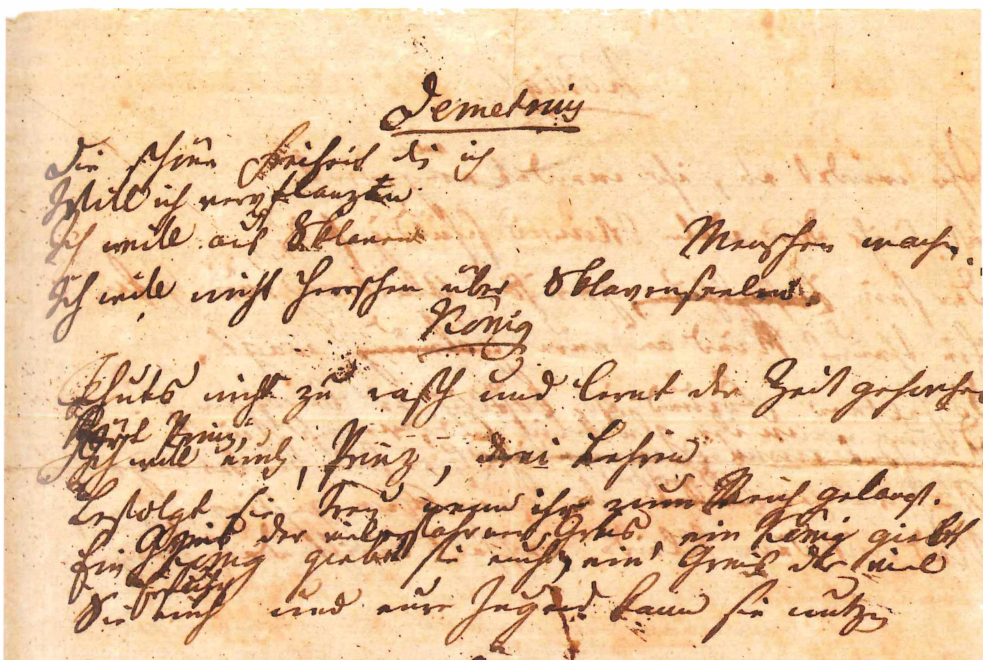 Demetrius
Die schöne Freiheit die ich
Will ich verpflanzen
Ich will aus Sklaven Menschen mach.
Ich will nicht herrschen über Sklavenseelen.
König
Thuts nicht zu rasch und lernt der Zeit gehorchen
Hört Prinz,
Ich will euch, Prinz, drei Lehren
Befolgt sie treu wenn ihr zum Reich gelangt.
der vielerfahrene Greis ein König giebt
Ein König giebt sie euch, ein Greis der viel
erfuhr
Sie euch und eure Jugend kann sie nutzen